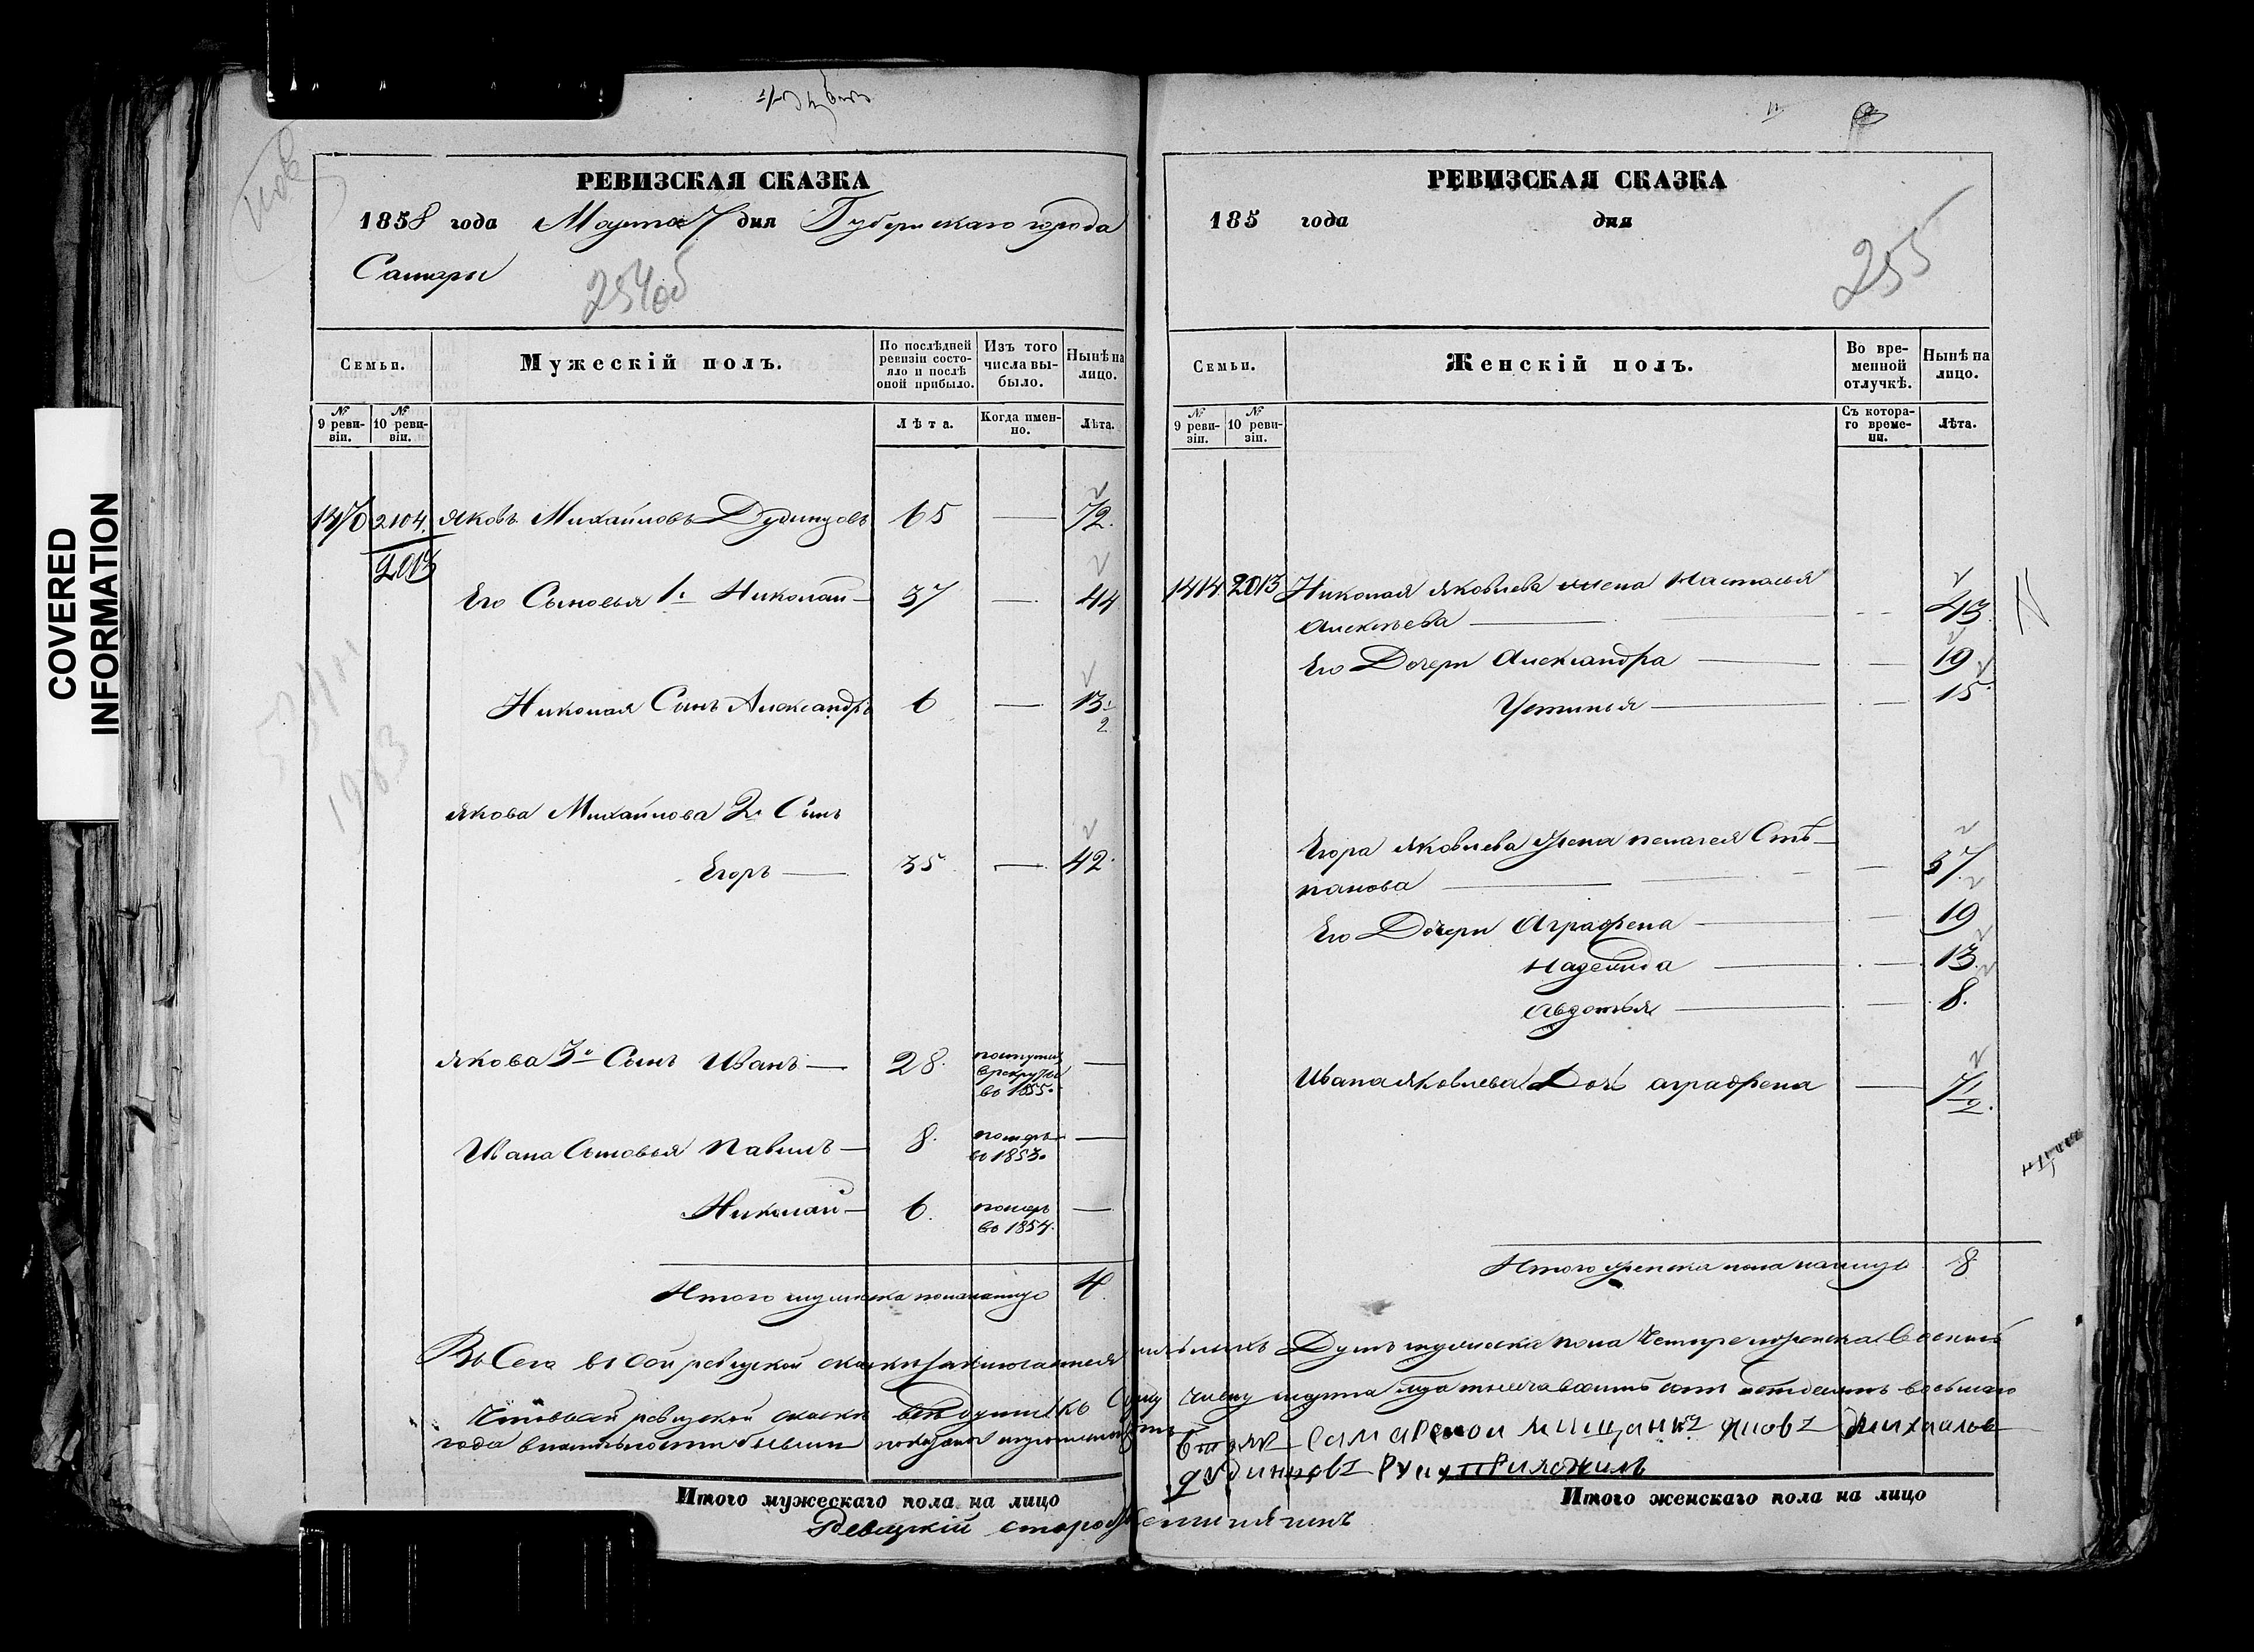 COVERED
INFORMATION
РЕВИЗСКАЯ СКАЗКА
1858 года Марта 7 дня Губернскаго города
Самары
254об
Семьи.
Мужескій полъ.
По послѣдней ревизіи состояло и послѣ оной прибыло.
Изъ того числа выбыло.
Нынѣ на лицо.
№ 9 ревизіи.
№ 10 ревизіи.
Лѣта.
Когда именно.
Лѣта.
2104. Яковъ Михайловъ Дудинцовъ 65 — 72.
2013
Его Сыновья 1й Николай — 37 — 44
Николая Сынъ Александръ 6 — 13 1/2
Якова Михайлова 2й Сынъ
Егоръ — 35 — 42
Якова 3й Сынъ Иванъ — 28. поступилъ в рекруты во 1855. —
Ивана Сыновья Павилъ — 8. померъ во 1853. —
Николай — 6. померъ во 1854. —
Итого мужеска пола на лицо 4.
РЕВИЗСКАЯ СКАЗКА
185 года дня
255
Семьи.
Женскій полъ.
Во временной отлучкѣ.
Нынѣ на лицо.
№ 9 ревизіи.
№ 10 ревизіи.
Съ котораго времени.
Лѣта.
1414 2013 Николая Яковлева жена Настасья
Алексѣева — 43.
Его Дочери Александра — 19
Устинья — 15
Егора Яковлева жена Пелагея Сте-
панова — 37.
Его Дочери Аграфена — 19
Надежда — 13
Авдотья — 8.
Ивана Яковлева Дочь Аграфена — 7 1/2.
Итого женска пола на лицо 8
Всего в сей ревизской сказки заключается наличныхъ Душъ мужеска пола Четыре женска Восемь
Что в сей ревизской сказки
Числу марта 7 дня тысяча восемь сотъ пятдесятъ восьмаго
года
самарской мищанинъ Яковъ Михаиловъ
дудинцовъ руку приложилъ
Итого мужескаго пола на лицо
Итого женскаго пола на лицо
Ревизкій староста